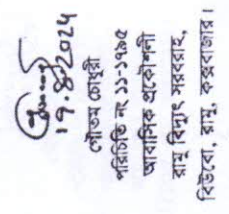 ১৭.৪.2024
গৌতম চৌধুরী
পরিচিতি নং ১১-১৭৯৫
আবাসিক প্রকৌশলী
রামু বিদ্যুৎ সরবরাহ,
বিউবো, রামু, কক্সবাজার।